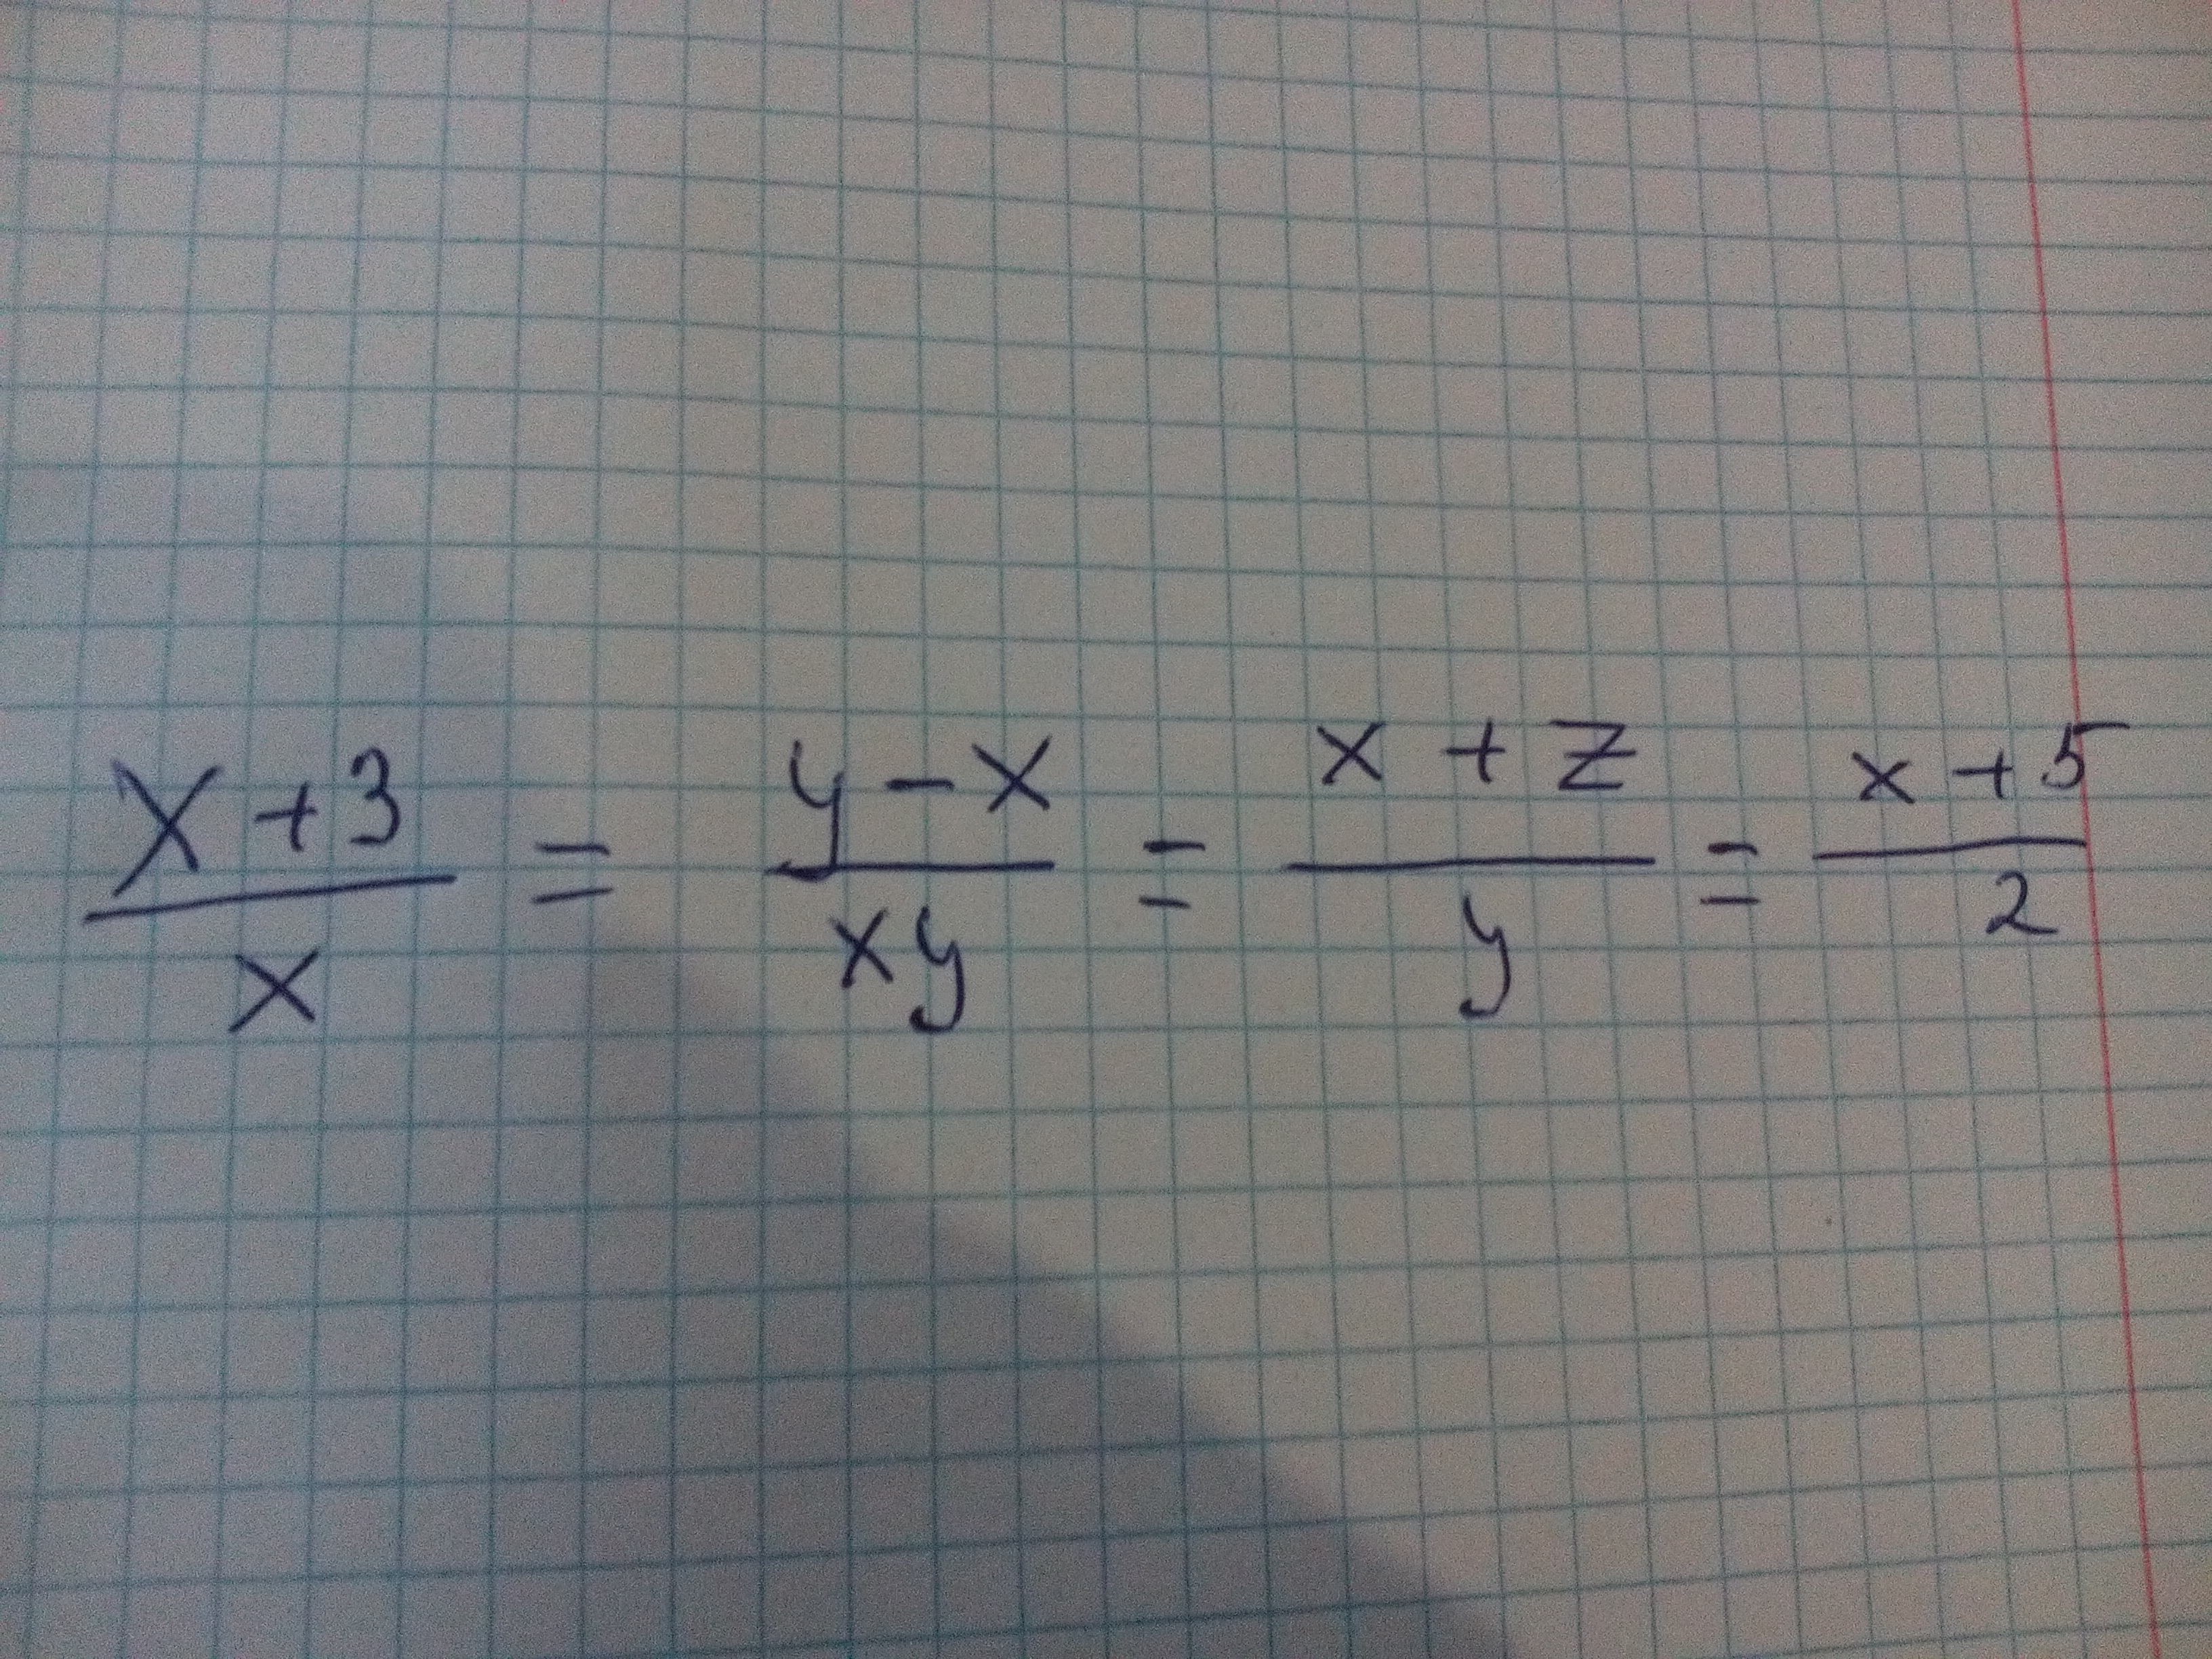 (x+3)/x = (y-x)/(xy) = (x+z)/y = (x+5)/2